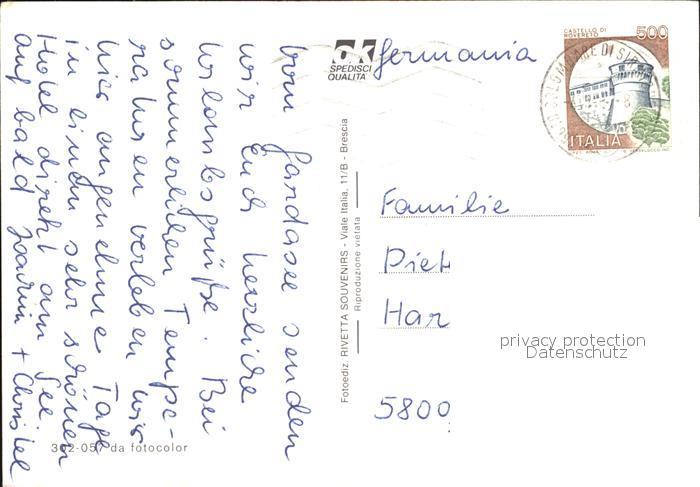 vom Gardasee senden
wir Euch herzliche
Urlaubsgrüße. Bei
sommerlichen Tempe-
raturen verleben wir
hier angenehme Tage
in einem sehr schönen
Hotel direkt am See.
auf bald Joachim + Christel
ok
SPEDISCI
QUALITÀ
Germania
CASTELLO DI
ROVERETO
500
ITALIA
Fotoediz. RIVETTA SOUVENIRS - Viale Italia, 11/B - Brescia
Riproduzione vietata
Familie
Diet
Har
5800
privacy protection
Datenschutz
302-057 da fotocolor